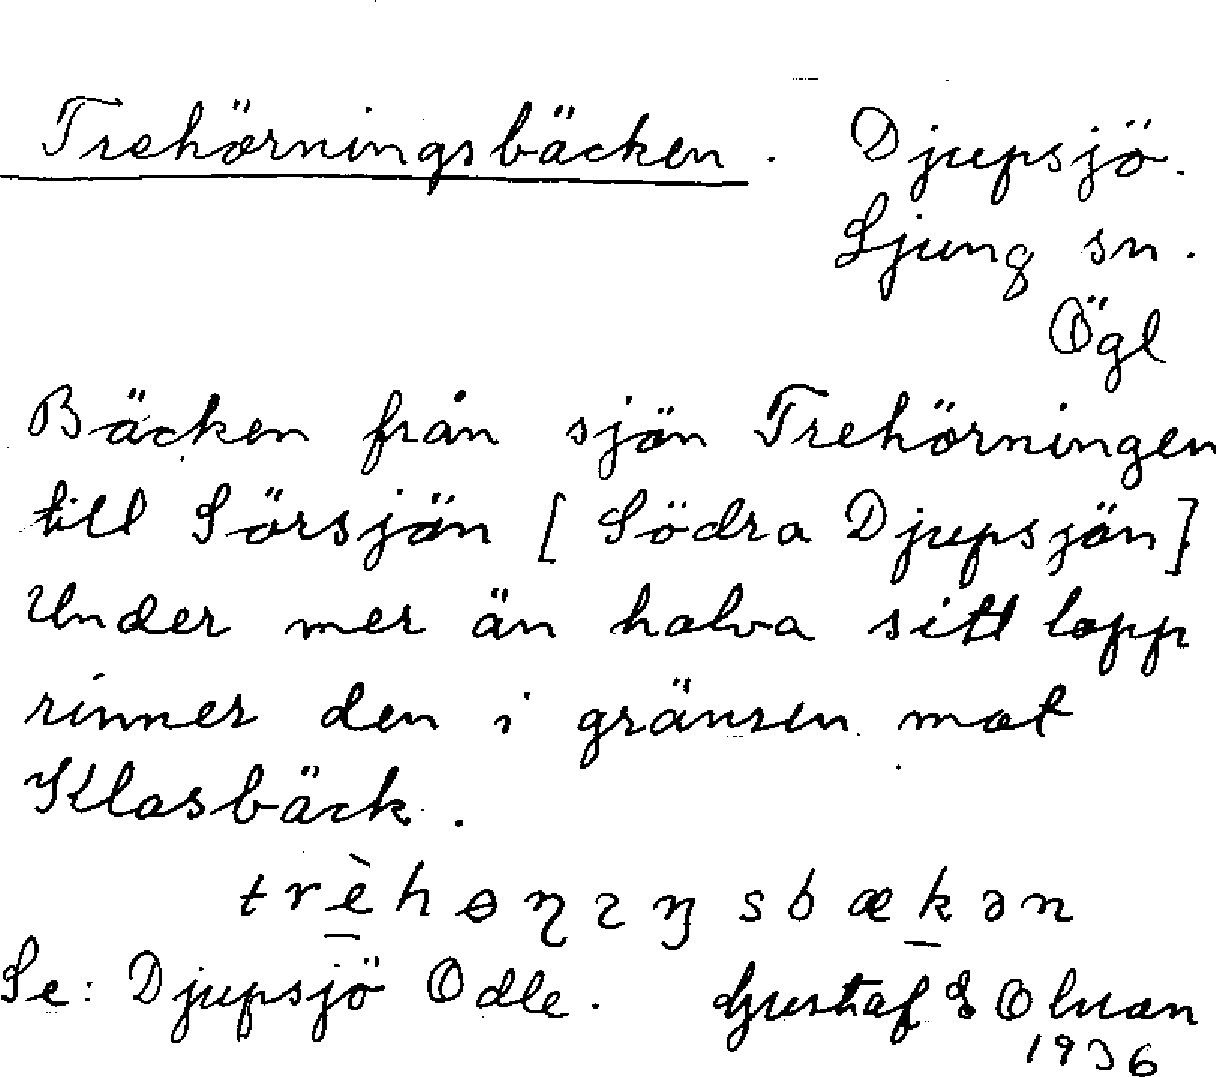 Trehörningsbäcken. Djupsjö.
Ljung sn.
Ögl
Bäcken från sjön Trehörningen
till Sörsjön [Södra Djupsjön]
Under mer än halva sitt lopp
rinner den i gränsen mot
Klasbäck.
Se: Djupsjö Odle. Gustaf E Olson
1936